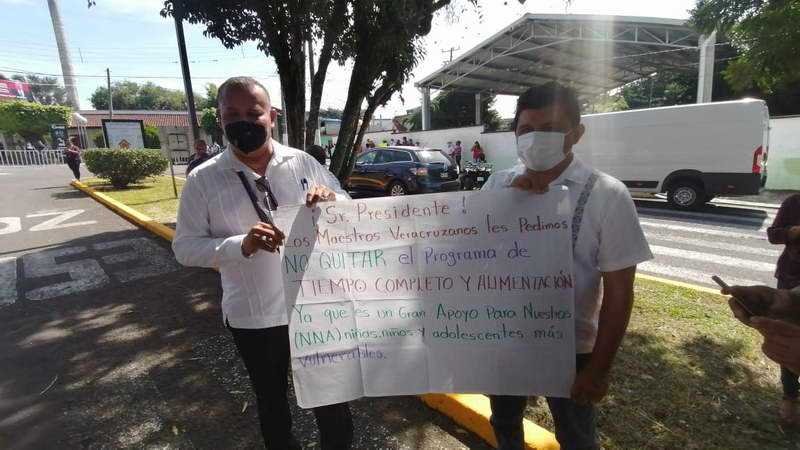 ¡Sr. Presidente!
Los Maestros Veracruzanos les Pedimos
NO QUITAR el Programa de
TIEMPO COMPLETO Y ALIMENTACIÓN
Ya que es un Gran Apoyo Para Nuestros
(NNA) niñas, niños y adolescentes más
vulnerables.